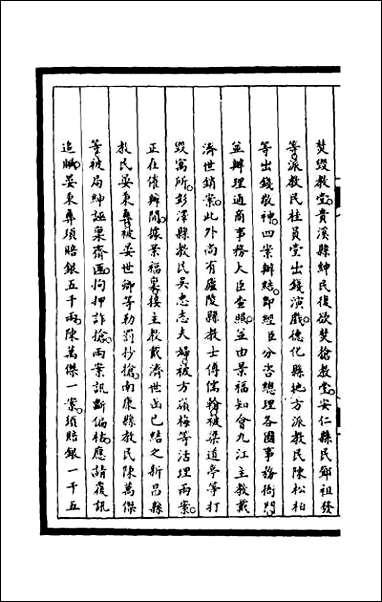 焚毀教堂貴溪縣紳民復欲焚搶教堂安仁縣民鄧祖發
等派教民杜員堂出錢演戲德化縣地方派教民陳松柏
等出錢敬神四案辦賠卽經臣分咨總理各國事務衙門
並辦理通商事務大臣查照並由景福知會九江主教戴
濟世銷案此外尚有廬陵縣教士傅儒翰被梁道亭等打
毀寓所彭澤縣教民吳忠志夫婦被方嶺梅等活埋兩案
正在催辦間據景福稟接主教戴濟世函已結之新昌縣
教民晏秉彝被晏世卿等勒罰抄搶南康縣教民陳萬傑
等被局紳誣稟齊匪拘押詐搶兩案訊斷偏枯應請覆訊
追贓晏秉彝須賠銀五千兩陳萬傑一案須賠銀一千五